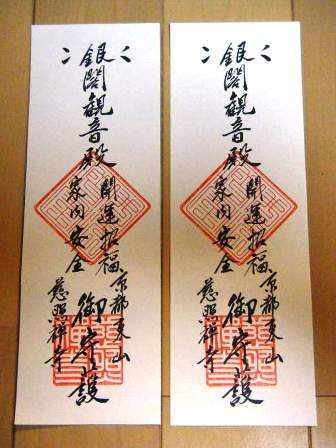 銀閣観音殿
開運招福
家内安全
京都東山
慈照禅寺
御守護
銀閣観音殿
開運招福
家内安全
京都東山
慈照禅寺
御守護